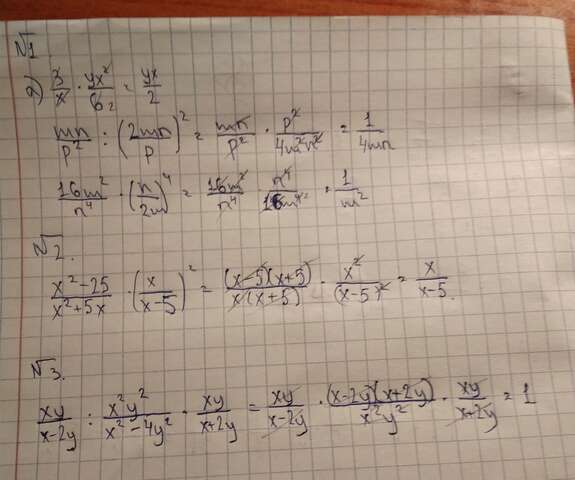 №1
а) 3/x · yx²/6 2 = yx/2
mn/p² : (2mn/p)² = mn/p² · p²/4m²n² = 1/4mn
16m²/n⁴ · (n/2m)⁴ = 16m²/n⁴ · n⁴/16m⁴ = 1/m²
№2.
x²-25/x²+5x · (x/x-5)² = (x-5)(x+5)/x(x+5) · x²/(x-5)² = x/x-5.
№3.
xy/x-2y : x²y²/x²-4y² · xy/x+2y = xy/x-2y · (x-2y)(x+2y)/x²y² · xy/x+2y = 1